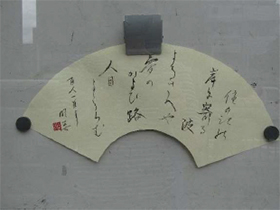 住の江の
岸に寄る
波
よるさへや
夢の
かよひ路
人目
よくらむ
百人一首より